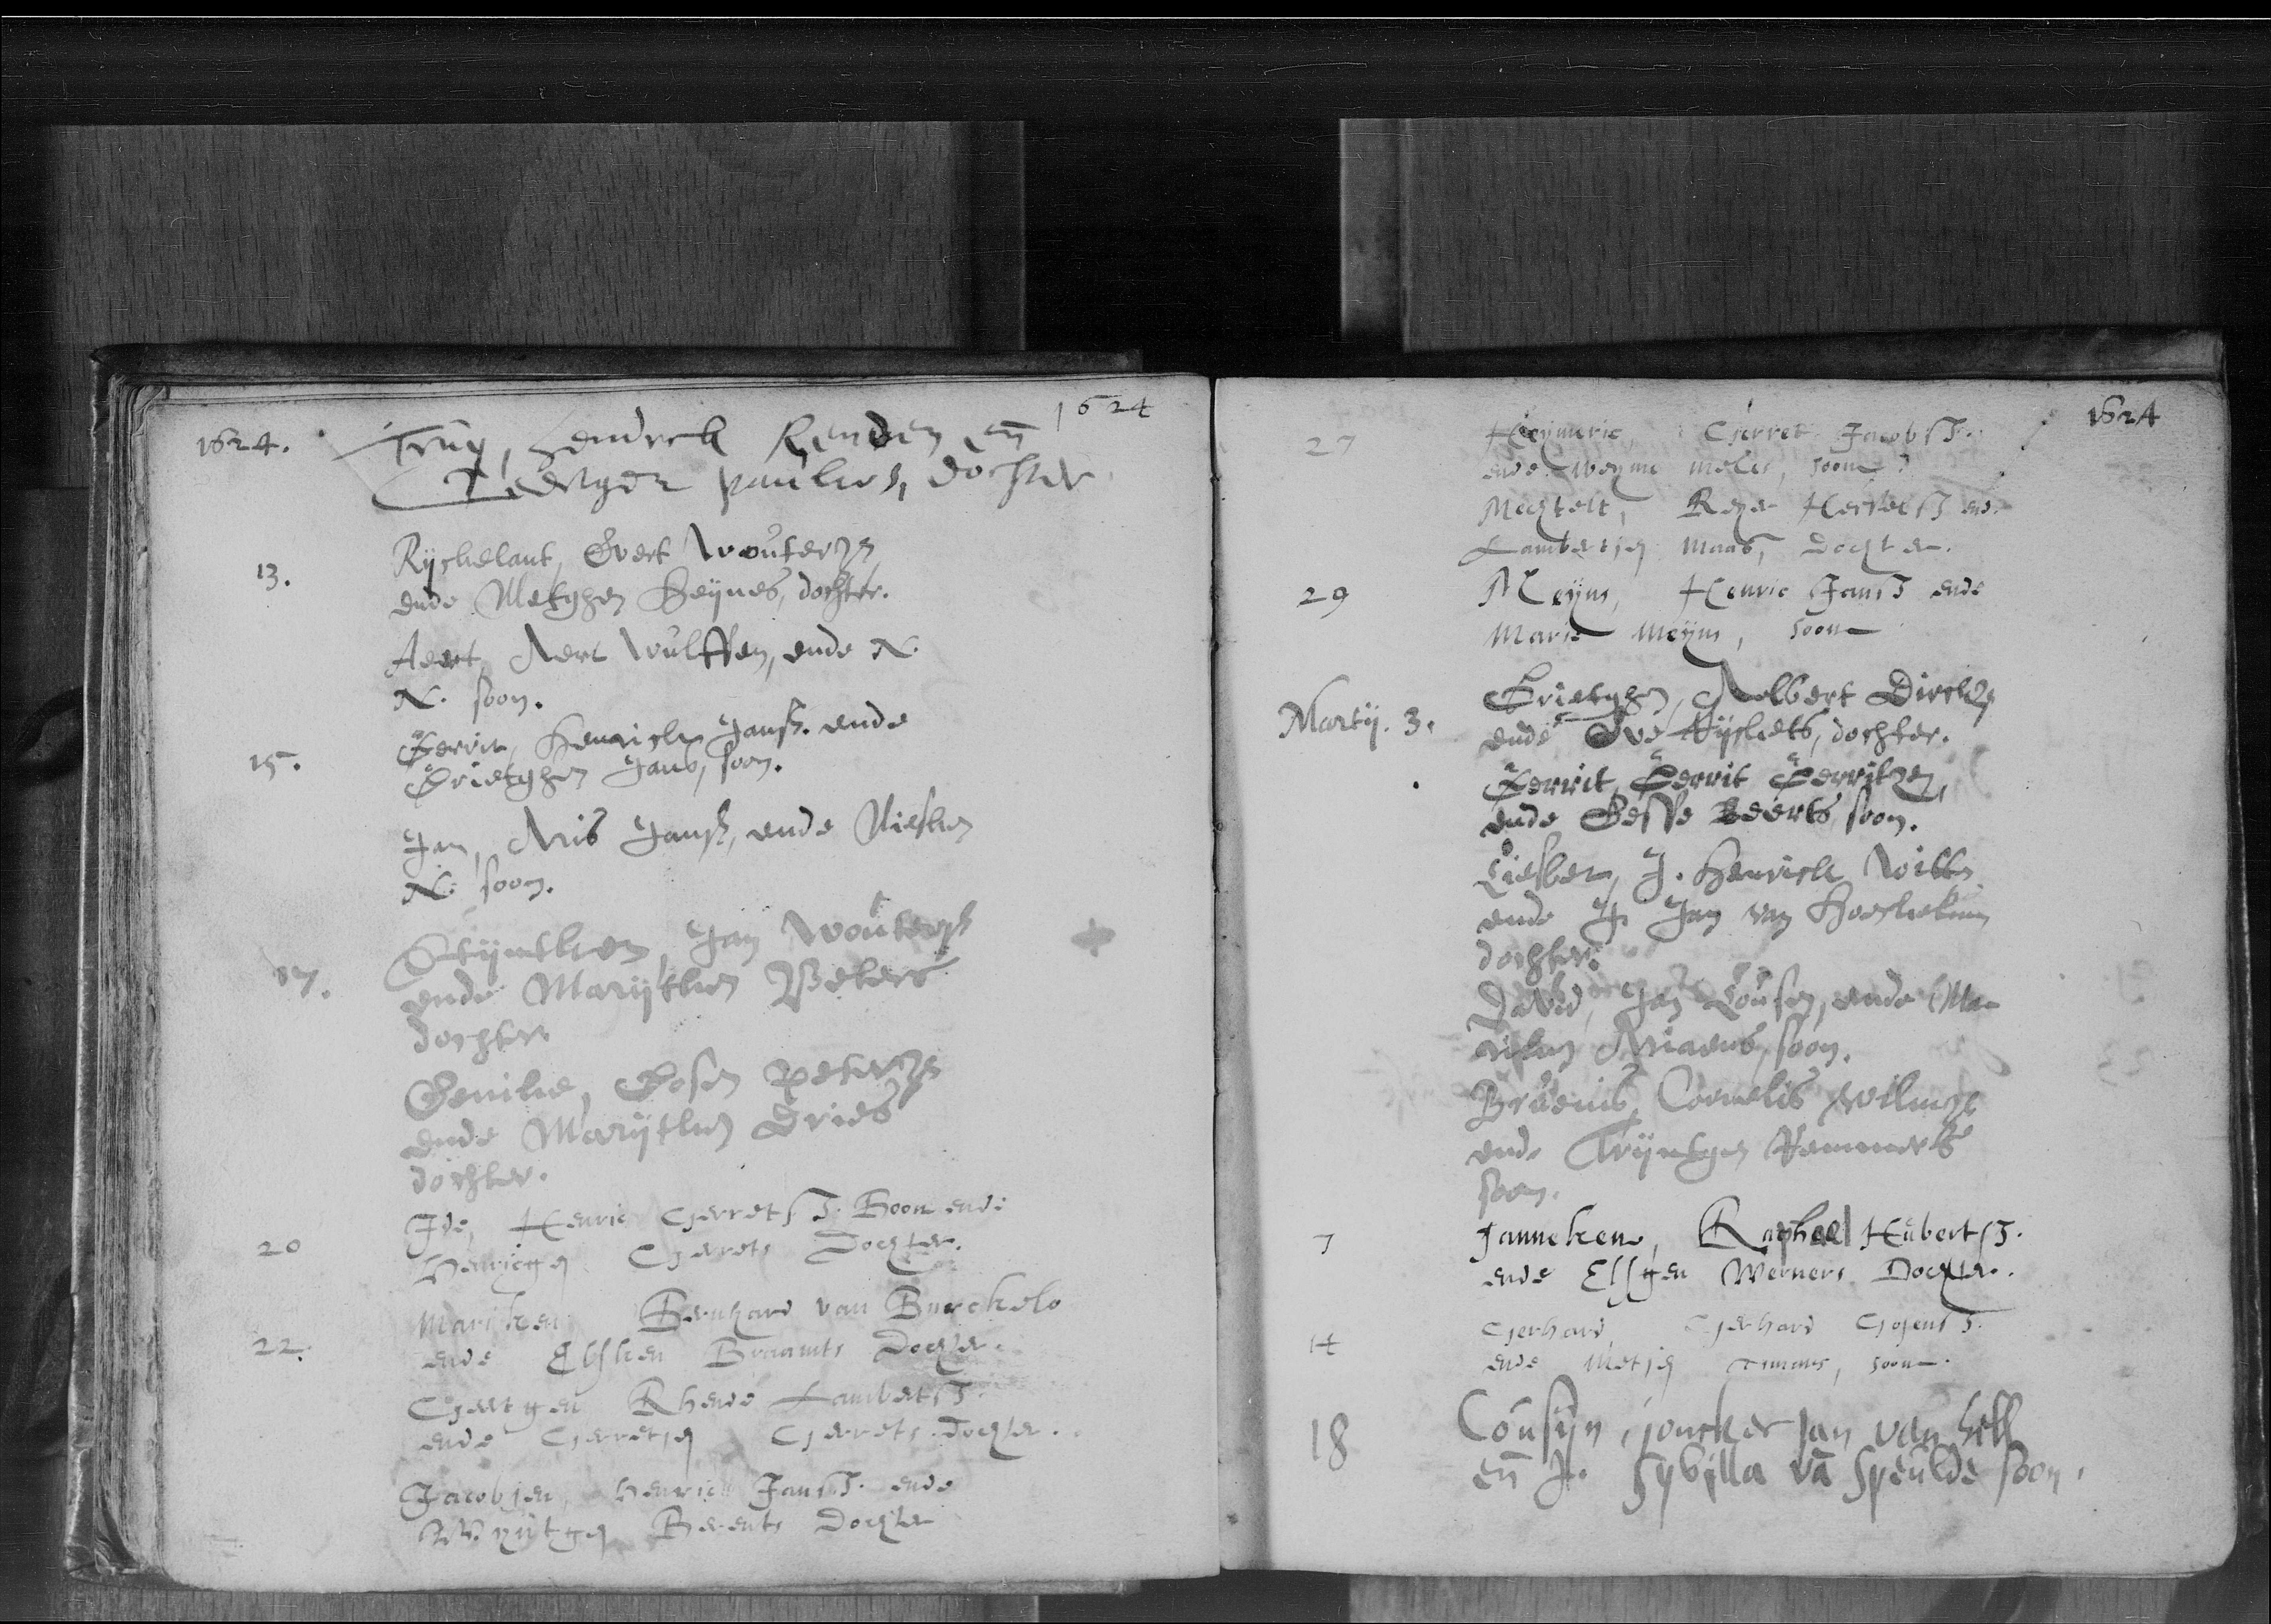 1624. 1624
Truy, Hendrck Renden en̄
Paulus, dochter
13. Ryckelant, Evert Wouterzn
ende Metghen Heijnes, dochter.
Aert, Aert Wulffen, ende N.
N. soon.
15. Gerrit, Henrick Janss. ende
Grietghen Jans, soon.
Jan, Aris Janss, ende
N. soon.
17. Stijntken, Jan Wouterss
ende Marijtken Peters
dochter
Goosen Peterzn
ende Marijtken Dries
dochter.
20 Ide, Henric Gerretsz. Boon ende
Henricgen Gerrets Dochter.
22. Mariken Bernhard van Burckelo
ende Elsken Braamts Dochter.
Geertgen Lambertsz.
ende Gerretjen Gerrets. Dochter.
Jacobjen, Henrick Jansz. ende
Berents Dochter
1624
27 Heymeric, Gerret Jacobsz.
ende Weyme Melis, soon
Mechtelt, Reyer ende
Lambertjen Maas, Dochter.
29 Meyns, Henric Jansz ende
Marie Meyns, soon
Martij. 3. Grietghen, Aelbert Dirckzn
ende Eve Rijckets, dochter.
Gerrit, Gerrit Gerritzen,
ende Gesse Beerts, soon.
Liesbet, J. Henrick Witten
ende Jr Jan van
dochter.
David, Jan Lousen, ende Ma-
riken Ariaens, soon.
Cornelis Wilmzn
ende Trijntgen Remmerts
soon.
7 Janneken, Raphael Hubertsz.
ende Elsgen Werners Dochter.
14 Gerhard, Gerhard Gosensz.
ende Metjen Timans, soon.
18 Cousijn, joncker Jan van Hell
en̄ Jr. Sybilla vā Speulde soon.